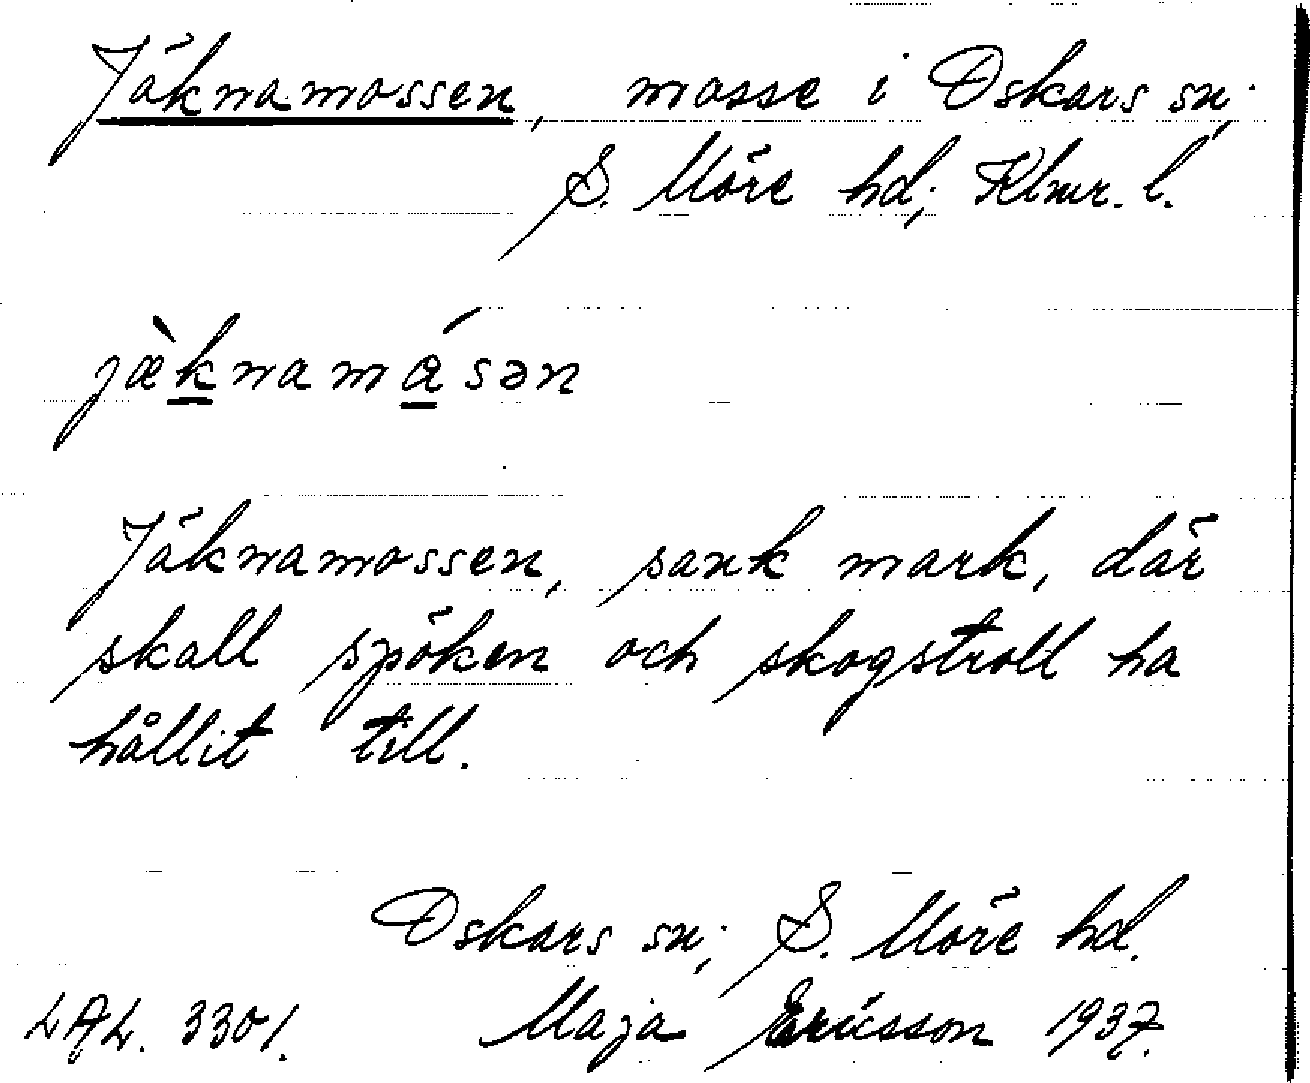 Jäknamossen, mosse i Oskars sn;
S. Möre hd; Klmr. l.
jæ̀knamásən
Jäknamossen, sank mark, där
skall spöken och skogstroll ha
hållit till.
Oskars sn; S. Möre hd.
LAL. 3301. Maja Ericsson 1937.